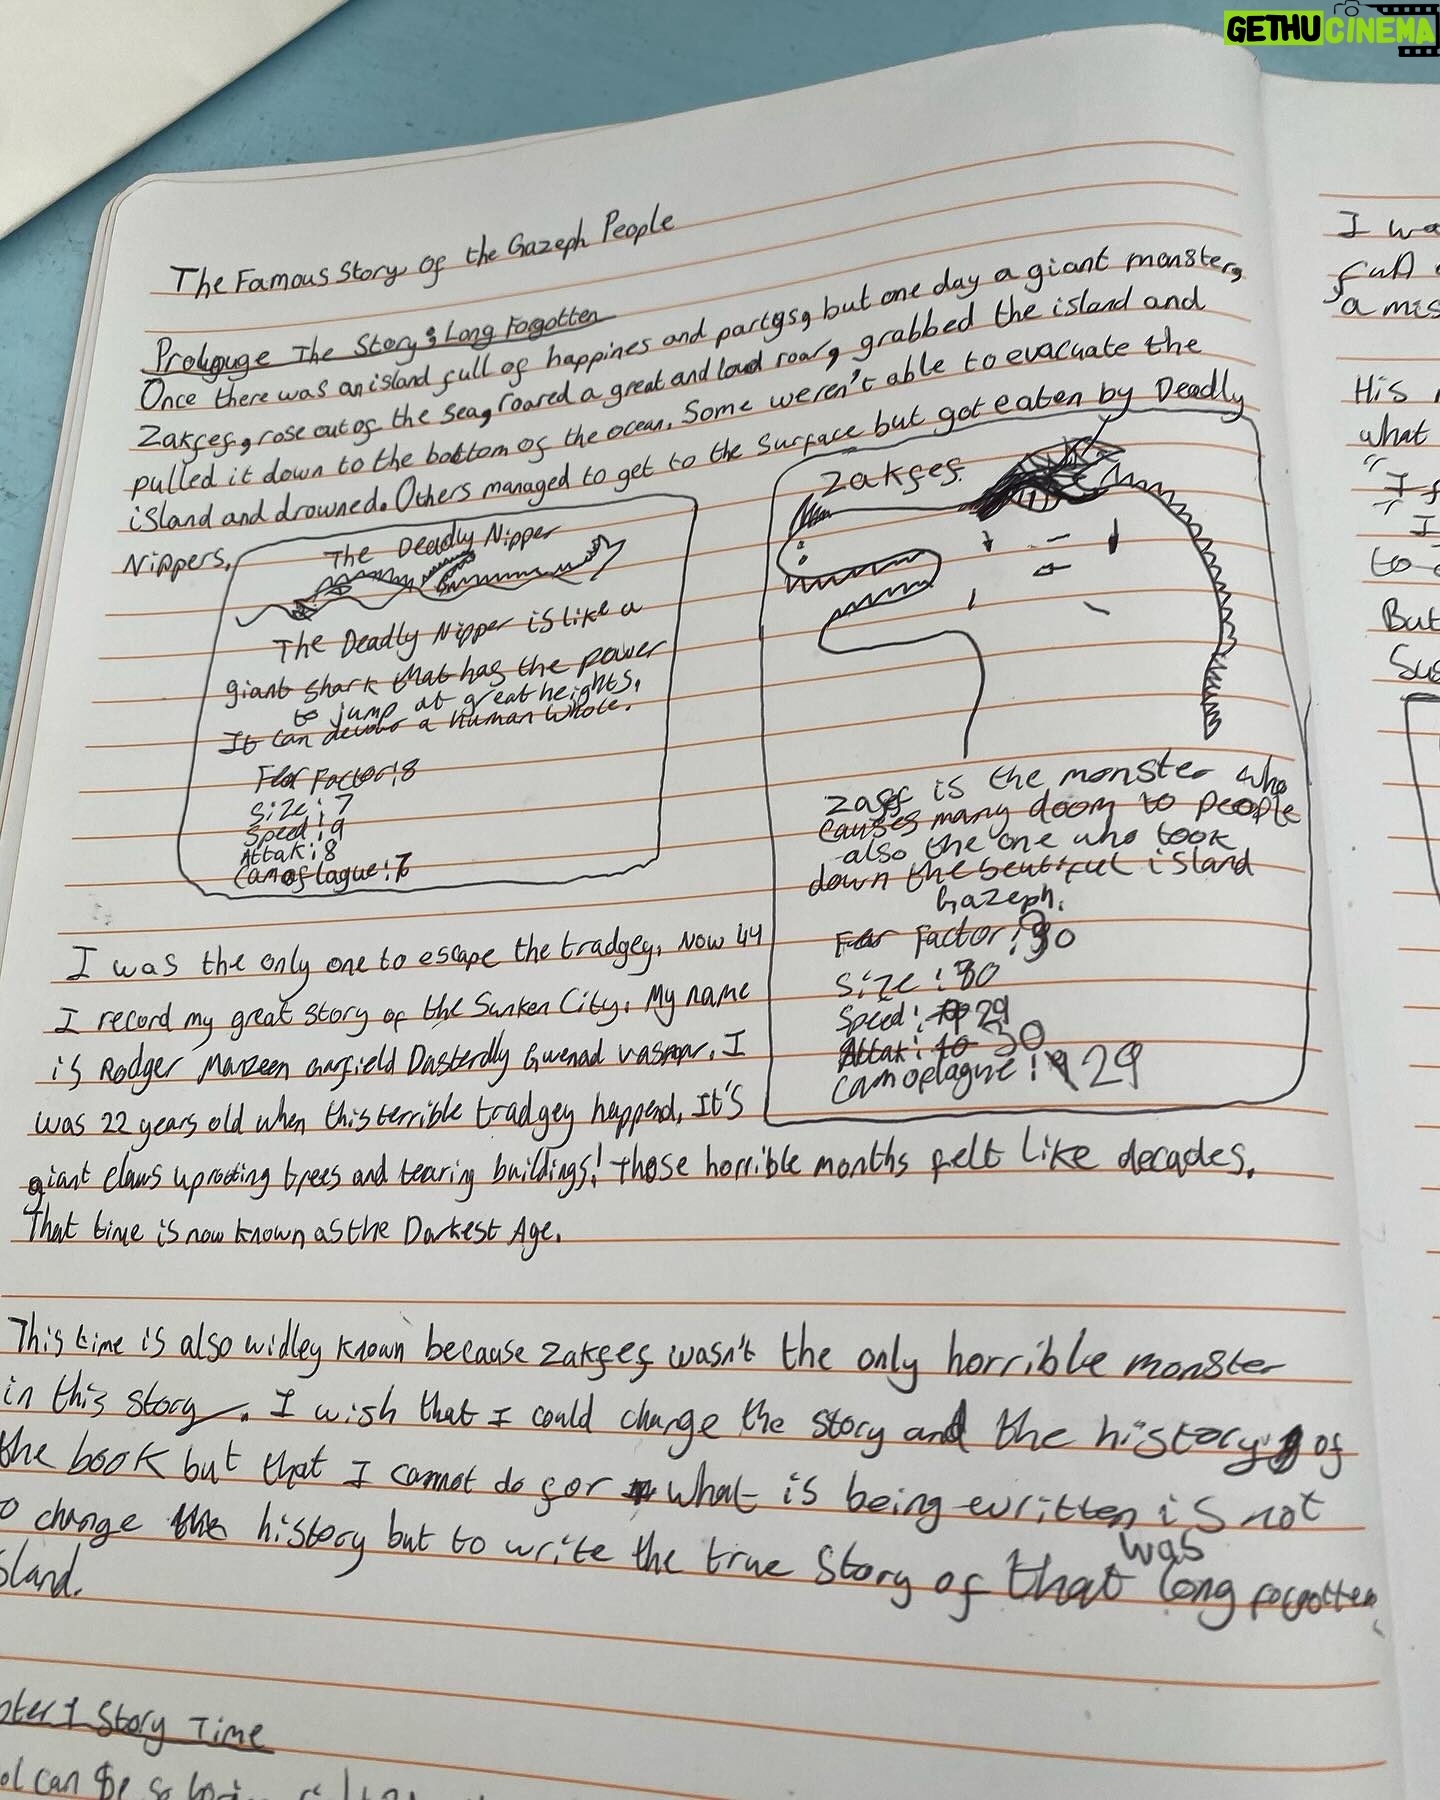 GETHUCINEMA
The Famous Story Of the Gazeph People
Prolguge The Story Long Fogotten
Once there was an island full of happines and partys, but one day a giant monster,
Zakfef, rose out of the sea, roared a great and loud roar, grabbed the island and
pulled it down to the bottom of the ocean. Some weren't able to evacuate the
island and drowned. Others managed to get to the surface but got eaten by Deadly
Nippers.
The Deadly Nipper
The Deadly Nipper is like a
giant shark that has the power
to jump at great heights.
It can devour a human whole.
Fear Factor: 8
Size: 7
Speed: 9
Attak: 8
Camoflague: 7
Zakfef
is the monster who
causes many doom to people
also the one who took
down the beutiful island
Gazeph.
Fear Factor: 30
Size: 30
Speed: 29
Attak: 30
Camoplague: 29
I was the only one to escape the tradgey. Now 44
I record my great story of the Sunken City. My name
is Rodger Manzeen Garfield Dasterdly Gwenad. I
was 22 years old when this terrible tradgey happend. It's
giant claws uprooting trees and tearing buildings! Those horrible months felt like decades.
That time is now known as the Darkest Age.
This time is also widley known because Zakfef wasn't the only horrible monster
in this story. I wish that I could change the story and the history of
the book but that I cannot do for what is being written is not
o change the history but to write the true story of that was long forgotten
sland.
pter 1 Story Time
ol can be so
I wa
full
a mis
His
what
"I f
I
to
But
Sus